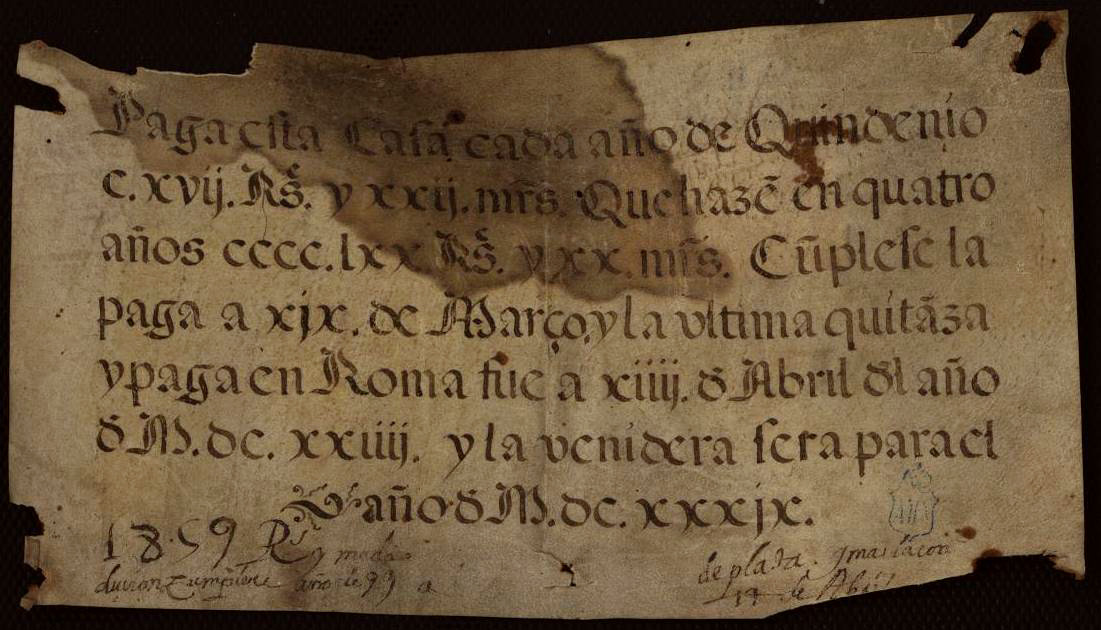 Paga esta Casa cada año de Quindenio
c.xvij. Rs̃. y xxij. mr̃s. Que hazẽ en quatro
años cccc.lxx Rs̃. y xx. mr̃s. Cũplese la
paga a xjx. de Março, y la vltima quitãza
y paga en Roma fue a xiiij. đ Abril đl año
đ M.dc. xxiiij. y la venidera sera para el
año đ M.dc. xxxjx.
1859 Rs y medio de plata. y mas la con
año de 99 a 14 de Abril